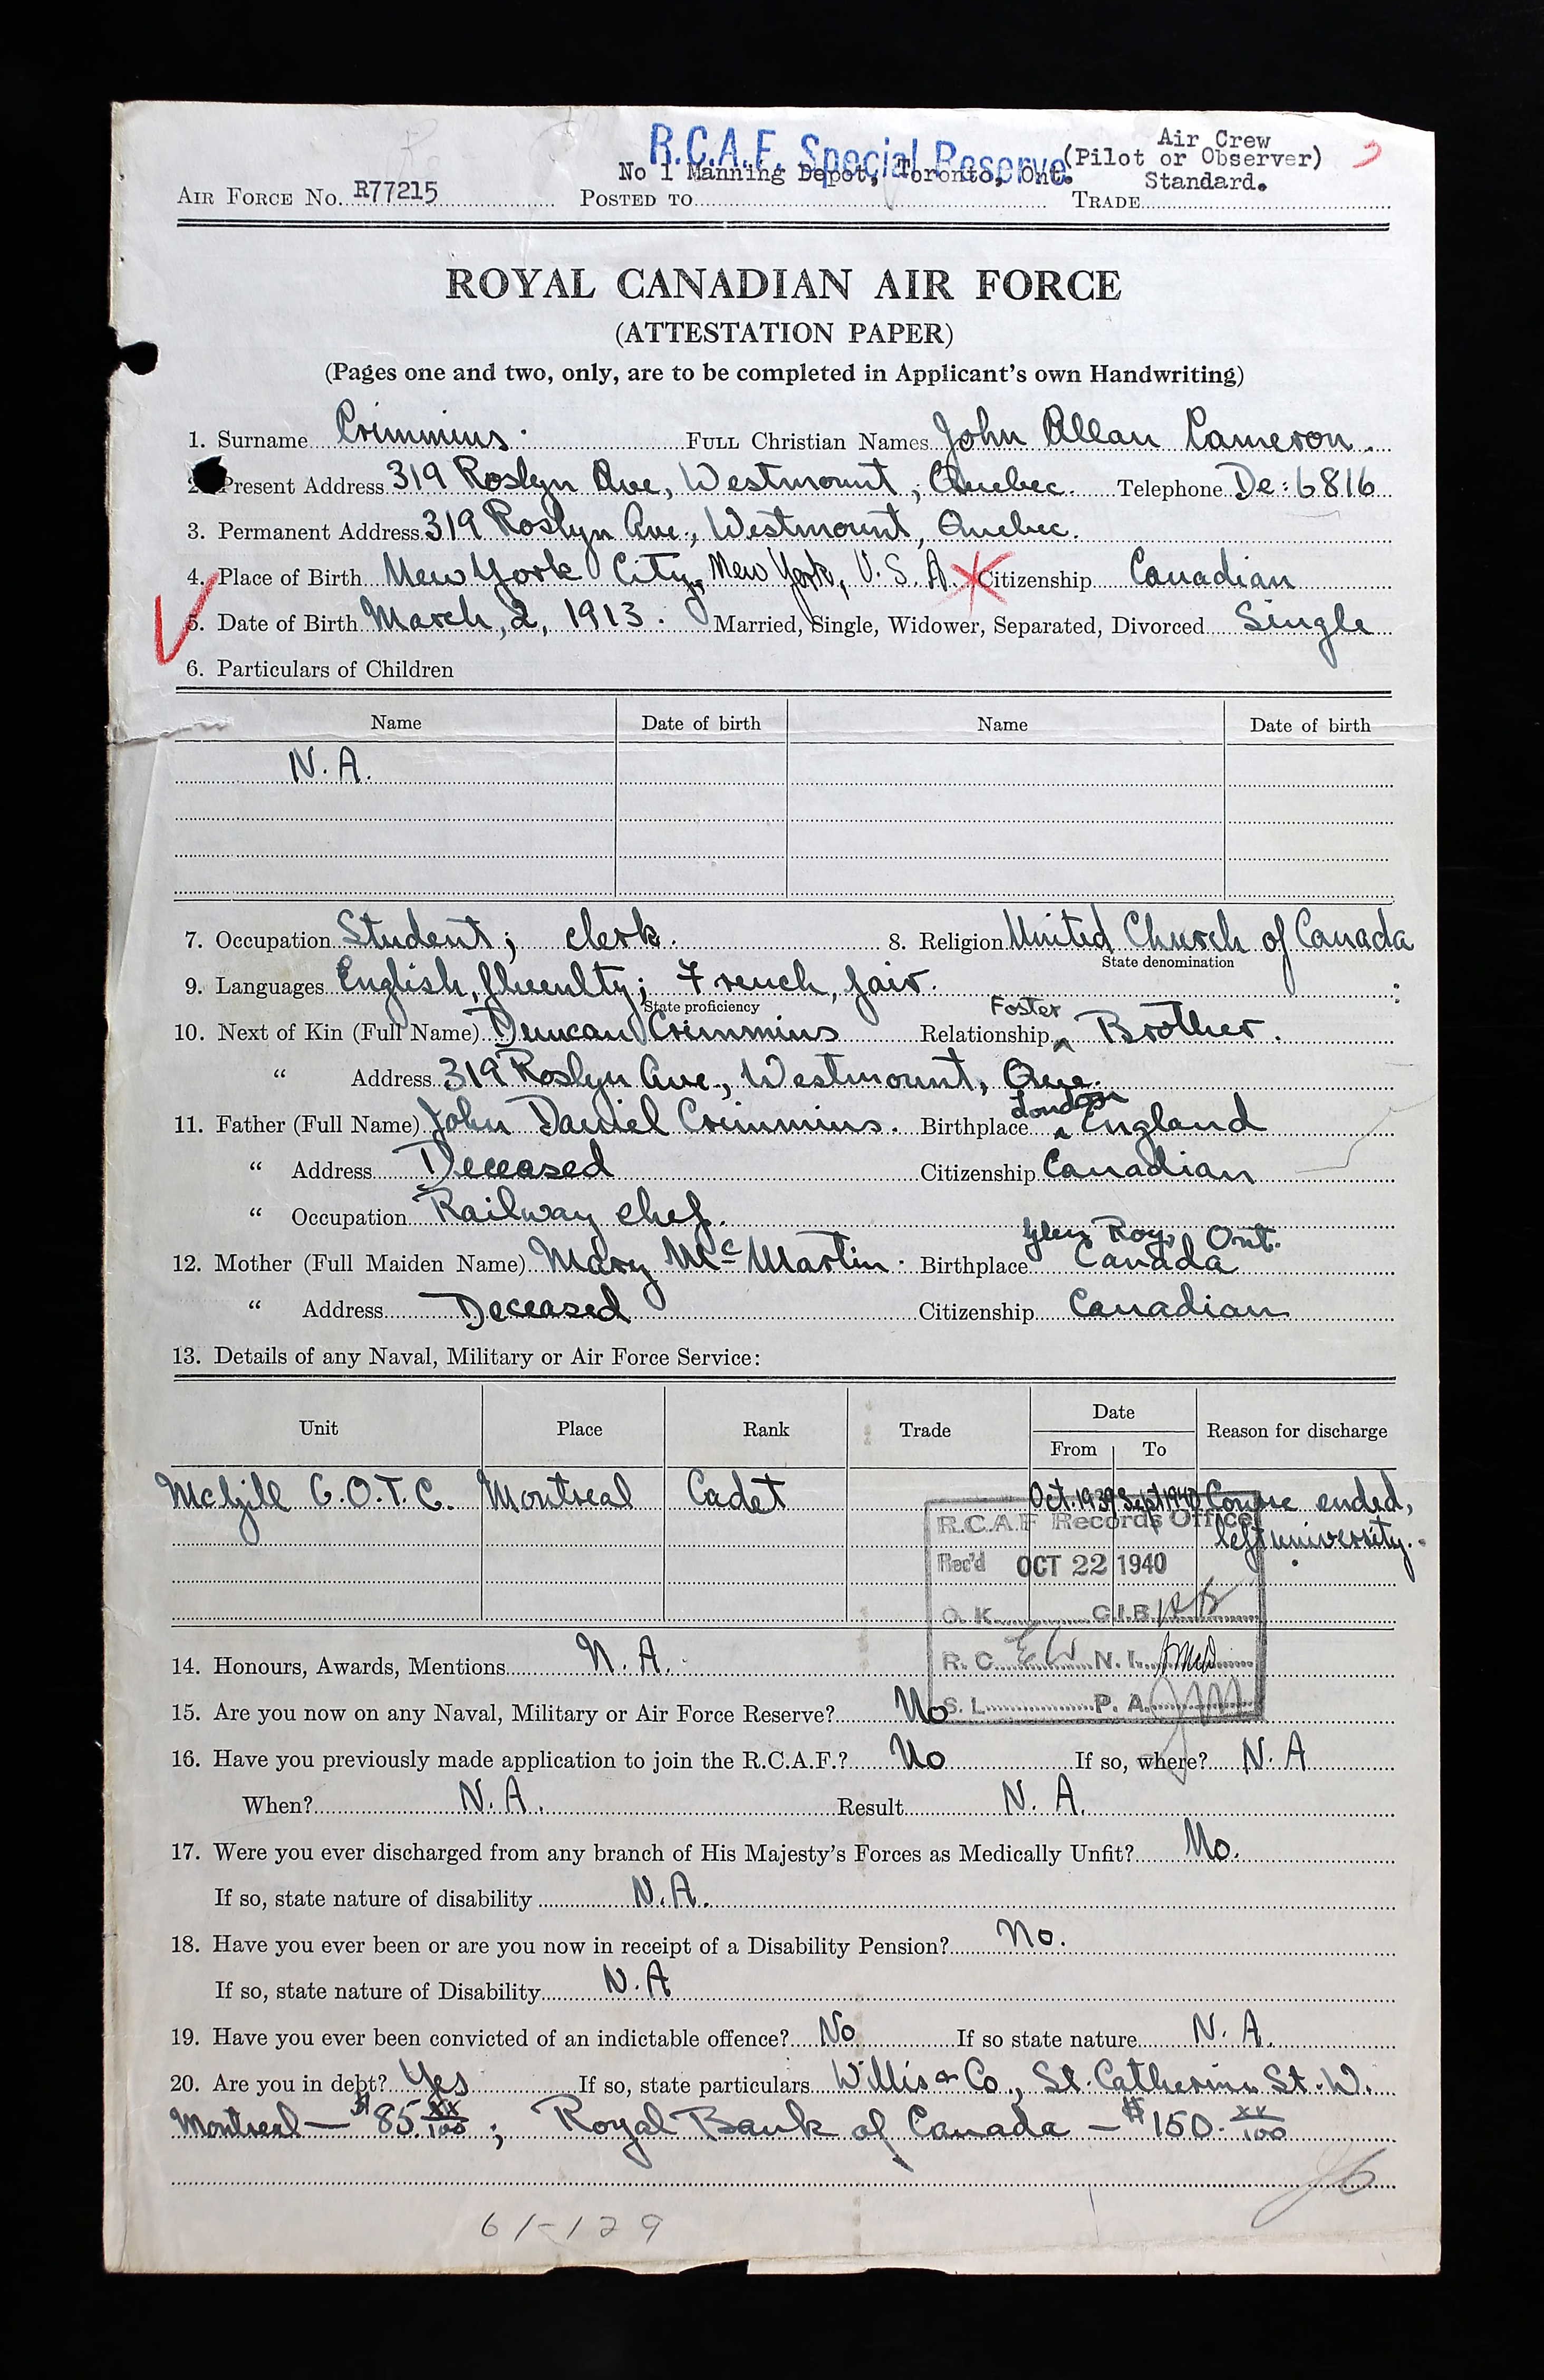 R.C.A.F. Special Reserve
Air Crew
(Pilot or Observer)
No 1 Manning Depot, Toronto, Ont.
Standard.
AIR FORCE NO. R77215 POSTED TO TRADE
ROYAL CANADIAN AIR FORCE
(ATTESTATION PAPER)
(Pages one and two, only, are to be completed in Applicant's own Handwriting)
1. Surname Crimmins. FULL Christian Names John Allan Cameron.
2. Present Address 319 Roslyn Ave, Westmount, Quebec. Telephone De: 6816
3. Permanent Address 319 Roslyn Ave., Westmount, Quebec.
4. Place of Birth New York City, New York, U.S.A. Citizenship Canadian
5. Date of Birth March, 2, 1913. Married, Single, Widower, Separated, Divorced Single
6. Particulars of Children
Name Date of birth Name Date of birth
N.A.
7. Occupation Student; clerk. 8. Religion United Church of Canada
State denomination
9. Languages English, fluently; French, fair.
State proficiency
Foster
10. Next of Kin (Full Name) Duncan Crimmins Relationship Brother.
" Address 319 Roslyn Ave., Westmount, Que.
London
11. Father (Full Name) John Daniel Crimmins. Birthplace England
" Address Deceased Citizenship Canadian
" Occupation Railway chef.
Glen Roy, Ont.
12. Mother (Full Maiden Name) Mary McMartin. Birthplace Canada
" Address Deceased Citizenship Canadian
13. Details of any Naval, Military or Air Force Service:
Unit Place Rank Trade Date Reason for discharge
From To
McGill C.O.T.C. Montreal Cadet Oct. 1939 Sept 1940 Course ended,
left university.
R.C.A.F Records Office
Rec'd OCT 22 1940
O.K. C.I.B.
R.C. N.I.
S.L. P.A.
14. Honours, Awards, Mentions N.A.
15. Are you now on any Naval, Military or Air Force Reserve? No
16. Have you previously made application to join the R.C.A.F.? No If so, where? N.A
When? N.A. Result N.A.
17. Were you ever discharged from any branch of His Majesty's Forces as Medically Unfit? No.
If so, state nature of disability N.A.
18. Have you ever been or are you now in receipt of a Disability Pension? No.
If so, state nature of Disability N.A
19. Have you ever been convicted of an indictable offence? No If so state nature N.A.
20. Are you in debt? Yes If so, state particulars Willis & Co., St. Catherine St. W.
Montreal — $85. xx/100; Royal Bank of Canada — $150. xx/100
61-129